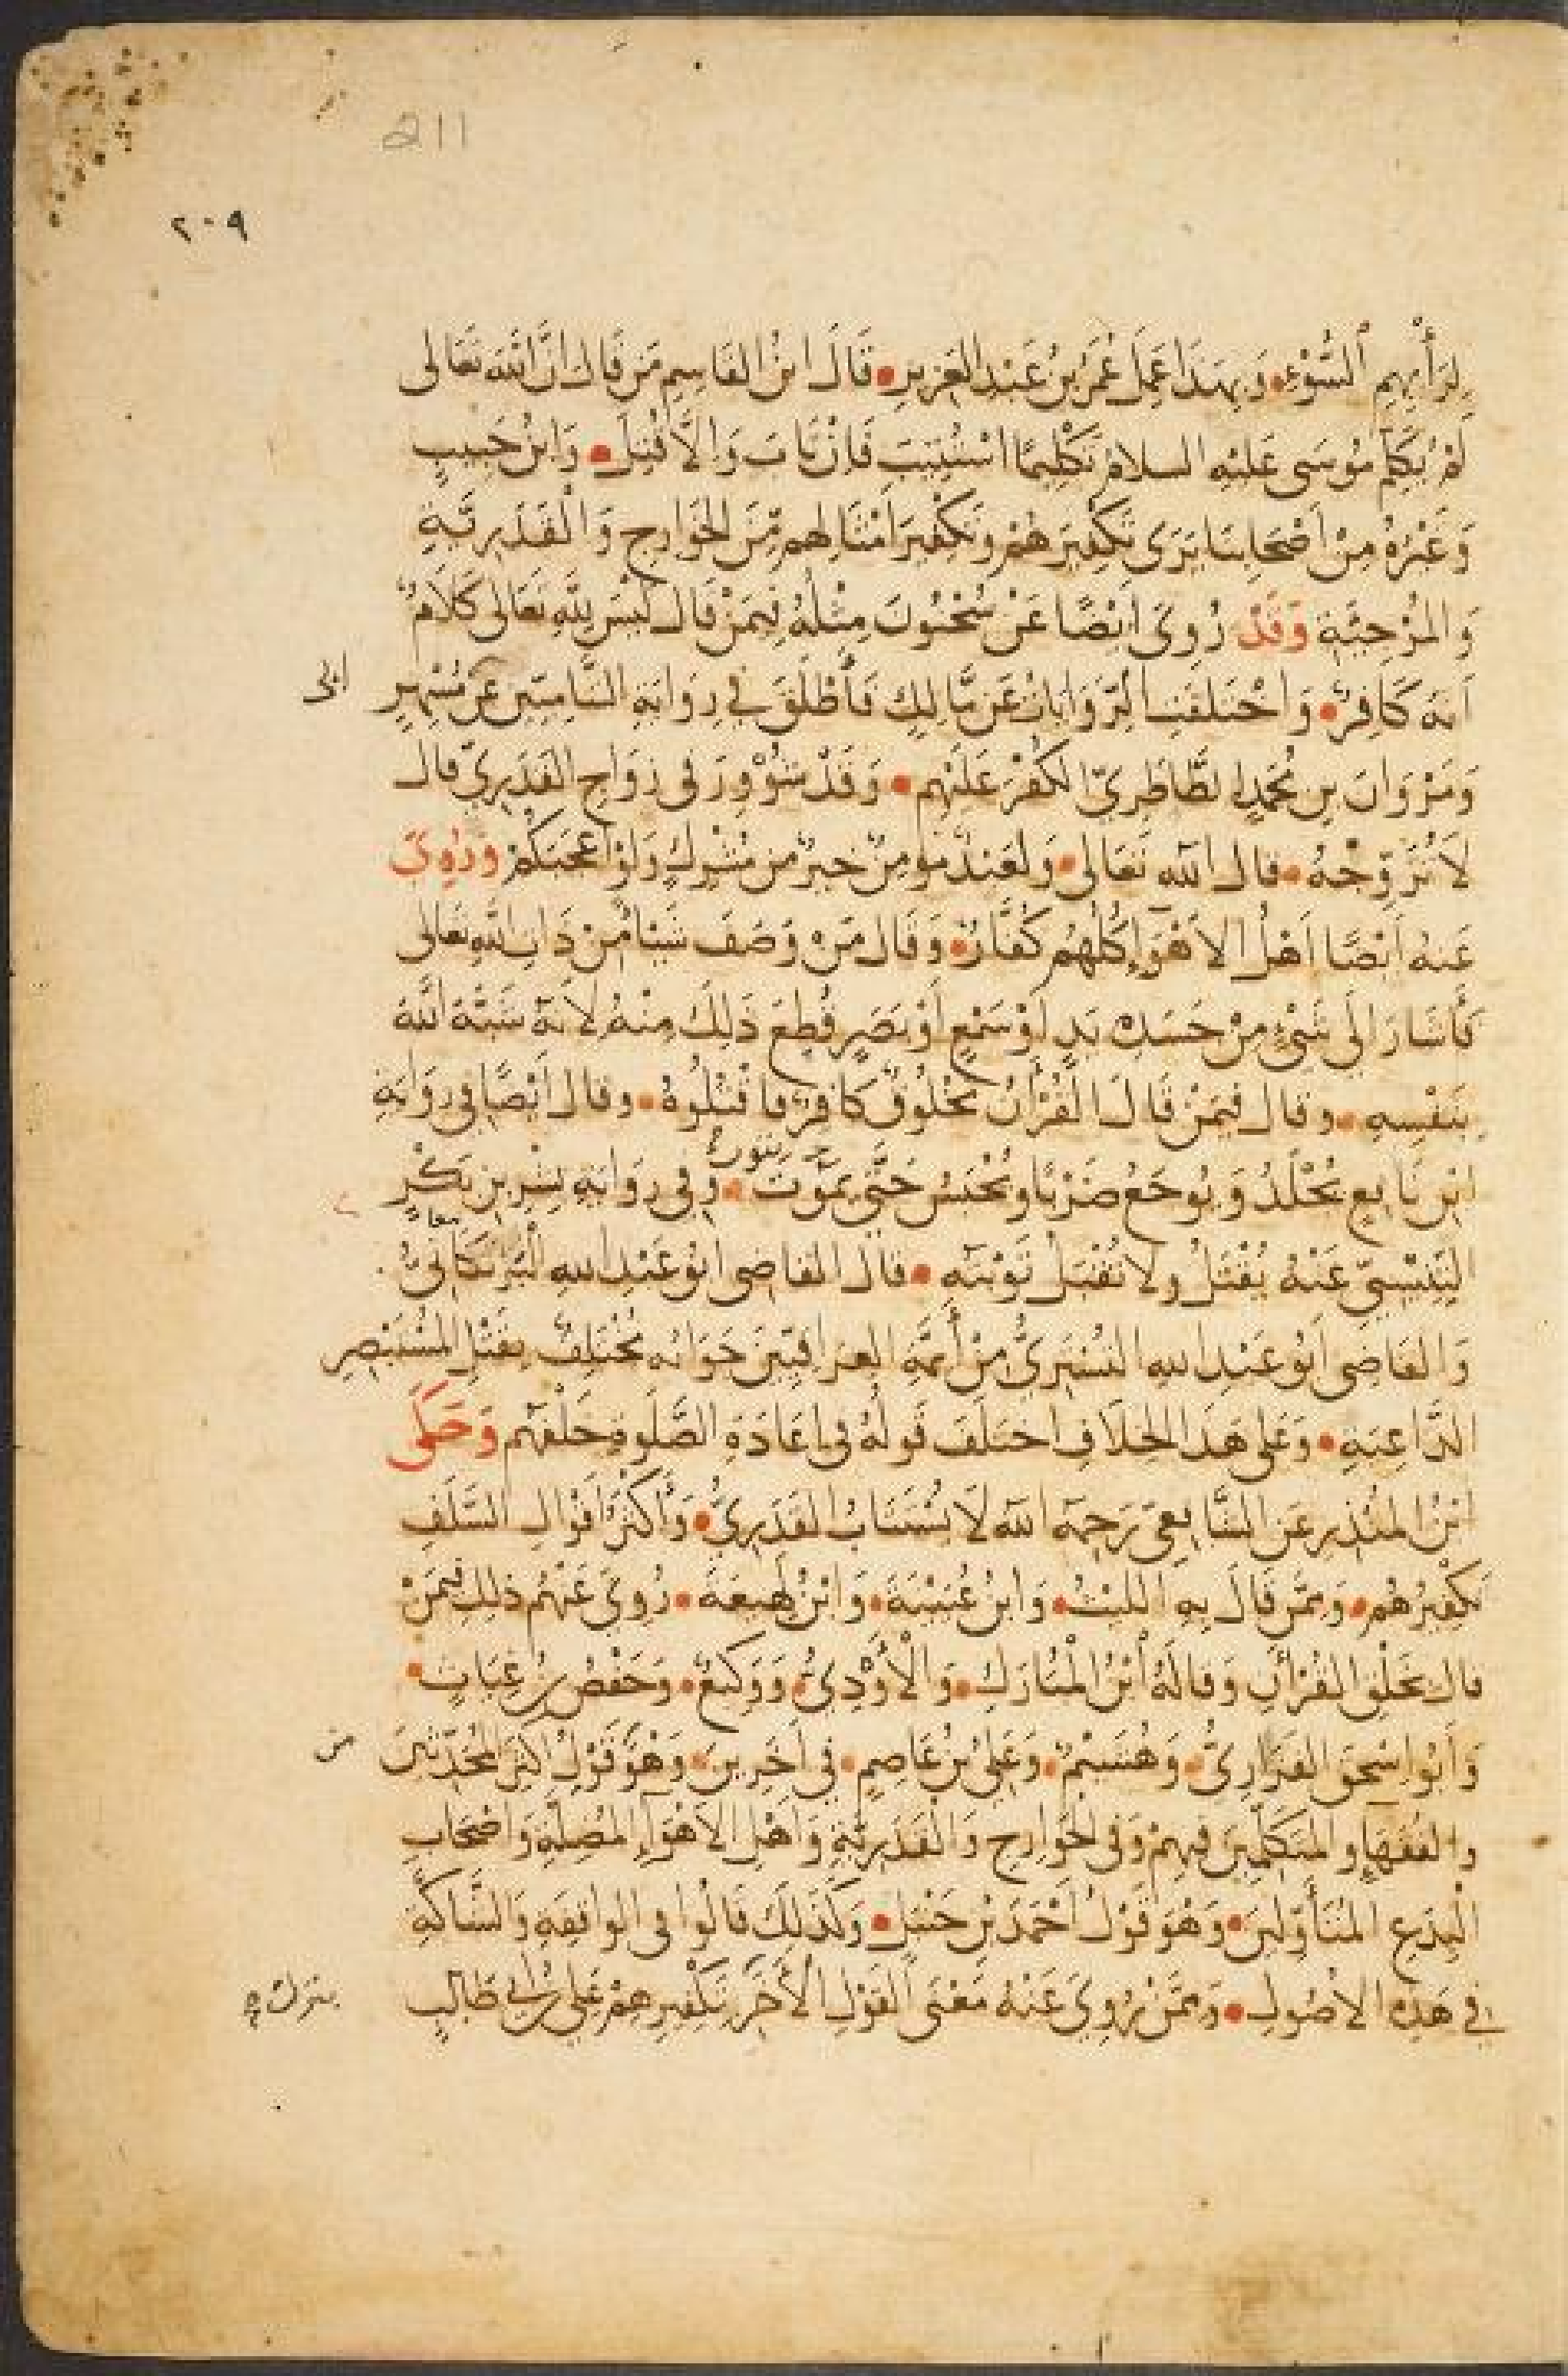 211
٢٠٩
لِرَأْيِهِم السُّوْءِ • وَبِهَذَا عَمِلَ عُمَرُ بنُ عَبْدِ العَزِيزِ • قَالَ ابنُ القَاسِمِ مَن قَالَ انَّ اللَّهَ تَعَالى
لَمْ يُكَلِّم مُوسَى عَلَيْهِ السلامُ تَكْلِيمًا اسْتُتِيبَ فَاِنْ تَابَ وَاِلاَّ قُتِلَ • وَابنُ حَبِيبٍ
وَغَيْرُهُ مِنْ أَصْحَابِنَا يَرَى تَكْفِيرَهُمْ وَتَكْفِيرَ أَمْثَالِهِم مِنَ الخَوَارِجِ وَالْقَدَرِيَّةِ
وَالمُرْجِئَةِ وَقَدْ رُوِيَ ايْضًا عَنْ سُحْنُونَ مِثْلُهُ فِيمَنْ قَالَ لَيْسَ لِلَّهِ تَعَالى كَلَامٌ
اَنه كَافِرٌ • وَاخْتَلَفَتِ الرِّوَايَاتُ عَن مَّالِكٍ فَأَطْلَقَ فِي رِوَايَةِ الشَّامِيِّين عَن مُسْهِرٍ ابى
وَمَرْوَانَ بنِ مُحَمَّدٍ الطَّاطَرِيّ الكُفْرَ عَلَيْهِم • وَقَدْ شُوْوِرَ فى زَوَاجِ القَدَرِيّ قال
لاَ تُزَوِّجْهُ • قال الله تَعَالى • وَلَعَبْدٌ مُومِنٌ خيرٌ من مُشْرِكٍ وَلَوْ أعْجَبَكُمْ وَرُوِيَ
عَنهُ اَيْضًا اَهْلُ الاَهْوَاءِ كُلُّهُم كُفَّارٌ • وَقَال مَن وَصَفَ شَيْئًا مِن ذَاتِ اللهِ تَعَالى
فَأَشَارَ اِلَى شَئٍْ مِنْ جَسَدِهِ يَدٍ اَوْ سَمْعٍ أَوْ بَصَرٍ قُطِعَ ذَلِكَ مِنْهُ لاَنهُ شَبَّهَ اللَّهَ
بنَفْسِهِ • وقال فيمَنْ قَالَ القُرْآنُ مَخْلُوقٌ كَافِرٌ فاقْتُلُوهُ • وقال اَيْضًا فى رِوَايَةِ
ابْنِ نَافِعٍ يُجْلَدُ وَيُوجَعُ ضَرْبًا وَيُحْبَسُ حَتَّى يَمُوْتَ • وَفى رِوَايَةِ بِشْرِ بنِ بَكْرٍ
يتوب
التِّنِّيسِيّ عَنْهُ يُقْتَلُ ولا تُقْبَلُ تَوْبَتُه • قال القاضى ابُو عَبْدِ اللهِ الْبَرْنَكَانِيُّ
معا
وَالقَاضِى ابُو عَبْدِ اللهِ التُّسْتَرِيُّ مِنْ أَئِمَّةِ العِرَاقِيّينَ جَوَابُه مُخْتَلِفٌ يقتلُ المُسْتَبْصِر
الدَّاعِيَةِ • وَعَلى هَذَا الخِلَافِ اختَلَفَ قَولُهُ فى اعَادَةِ الصَّلَوةِ خَلْفَهُم وَحَكَى
ابْنُ المُنْذِرِ عَن الشَّافِعِيّ رَحِمَهُ الله لَا يُسْتَتَابُ القَدَرِيُّ • وَأَكْثَرُ أَقْوَالِ السَّلَفِ
تَكْفِيرُهُم • وَمِمَّن قَالَ بهِ اللَّيْثُ • وَابنُ عُيَيْنَةَ • وَابْنُ لَهِيعَةَ • رُوِيَ عَنْهُم ذَلِكَ فيمَنْ
قال بخَلْقِ القُرْآنِ وَقَالَهُ ابْنُ الْمُبَارَكِ • وَالْأَوْدِيُّ • وَوَكِيعٌ • وَحَفْصُ بنُ غِيَاثٍ •
وَأَبُو اِسْحَقَ الفَزَارِيُّ • وَهُشَيْمٌ • وَعَلِيُّ بنُ عَاصِمٍ • فِي آخَرِينَ • وَهْوَ قَوْلُ اَكْثَرِ المُحَدِّثِينَ من
والفُقَهَاءِ والمُتَكَلِّمِينَ فِيهِمْ وَفى الخَوَارِجِ وَالْقَدَرِيَّةِ وَأَهْلِ الاَهْوَاءِ المُضِلَّةِ وَاَصْحَابِ
الْبِدَعِ المُتَأَوِّلِينَ • وَهْوَ قَوْلُ اَحْمَدَ بْنِ حَنْبَلٍ • وَكَذَلِكَ قَالُوا فى الوَاقِفَةِ وَالشَّاكَّةِ
فِي هَذِهِ الاُصُولِ • وَمِمَّنْ رُوِيَ عَنْهُ مَعْنَى القَوْلِ الآخَرِ بتَرْكِ تَكْفِيرِهِمْ عَلِيُّ بنُ ابي طَالِبٍ